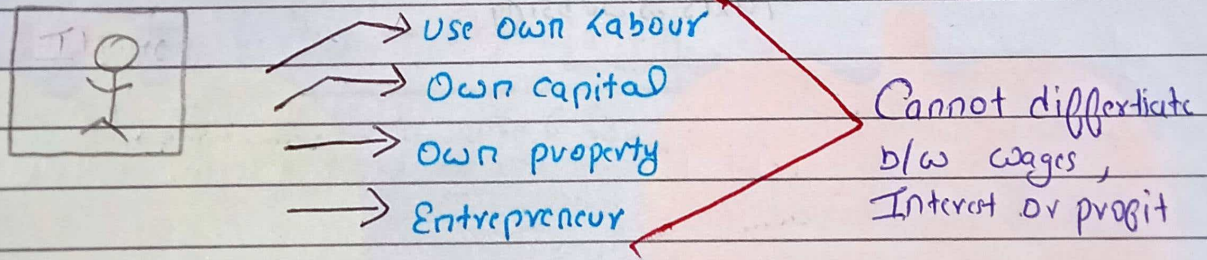 Use own Labour
Own capital
Own property
Entrepreneur
Cannot differtiate
b/w wages,
Interest or profit